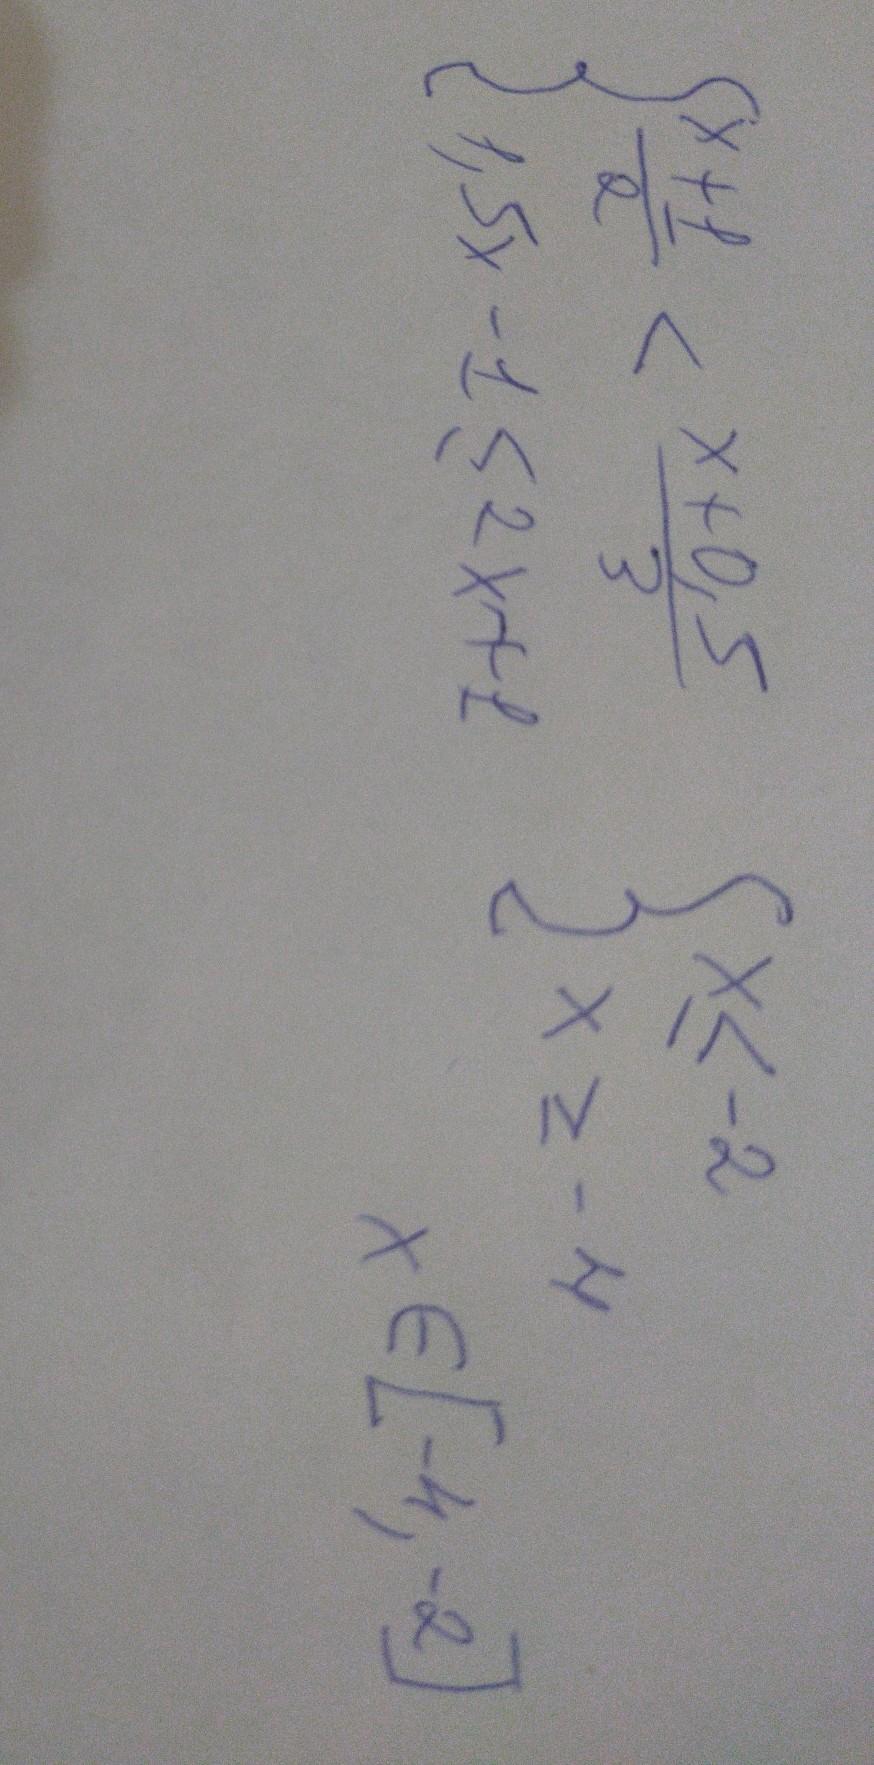 { x+1/2 < x+0,5/3
{ 1,5x - 1 ≤ 2x+1
{ x ≤ -2
{ x ≥ -4
x ∈ [-4, -2]